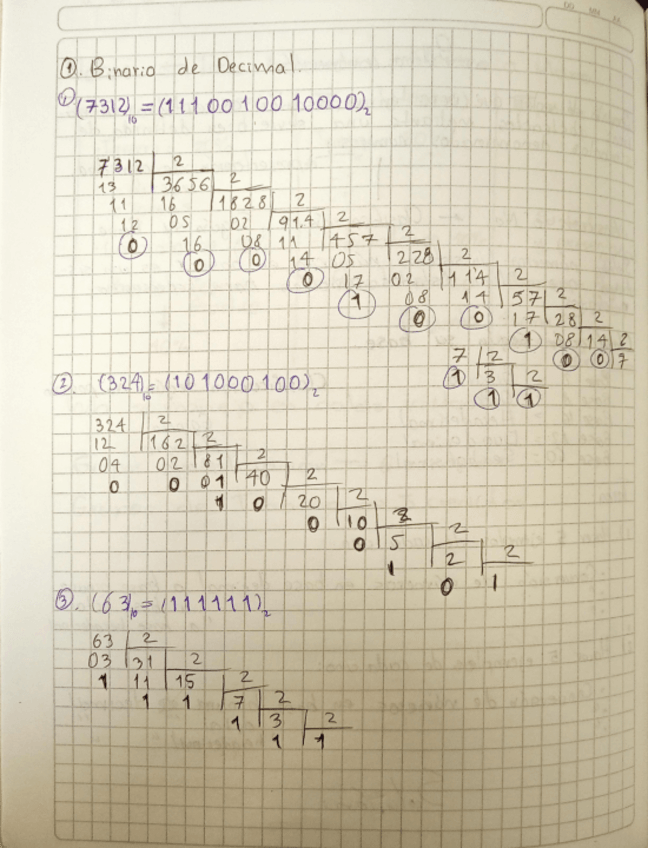 ①. Binario de Decimal.
① (7312)₁₀ = (11100 100 10000)₂
7312 2
13 3656 2
11 16 1828 2
12 05 02 914 2
0 16 08 11 457 2
0 0 14 05 228 2
0 17 02 114 2
1 08 14 57 2
0 0 17 28 2
1 08 14 2
0 0 7
7 2
1 3 2
1 1
②. (324)₁₀ = (101000100)₂
324 2
12 162 2
04 02 81 2
0 0 01 40 2
1 0 20 2
0 10 2
0 5 2
1 2 2
0 1
③. (63)₁₀ = (111111)₂
63 2
03 31 2
1 11 15 2
1 1 7 2
1 3 2
1 1